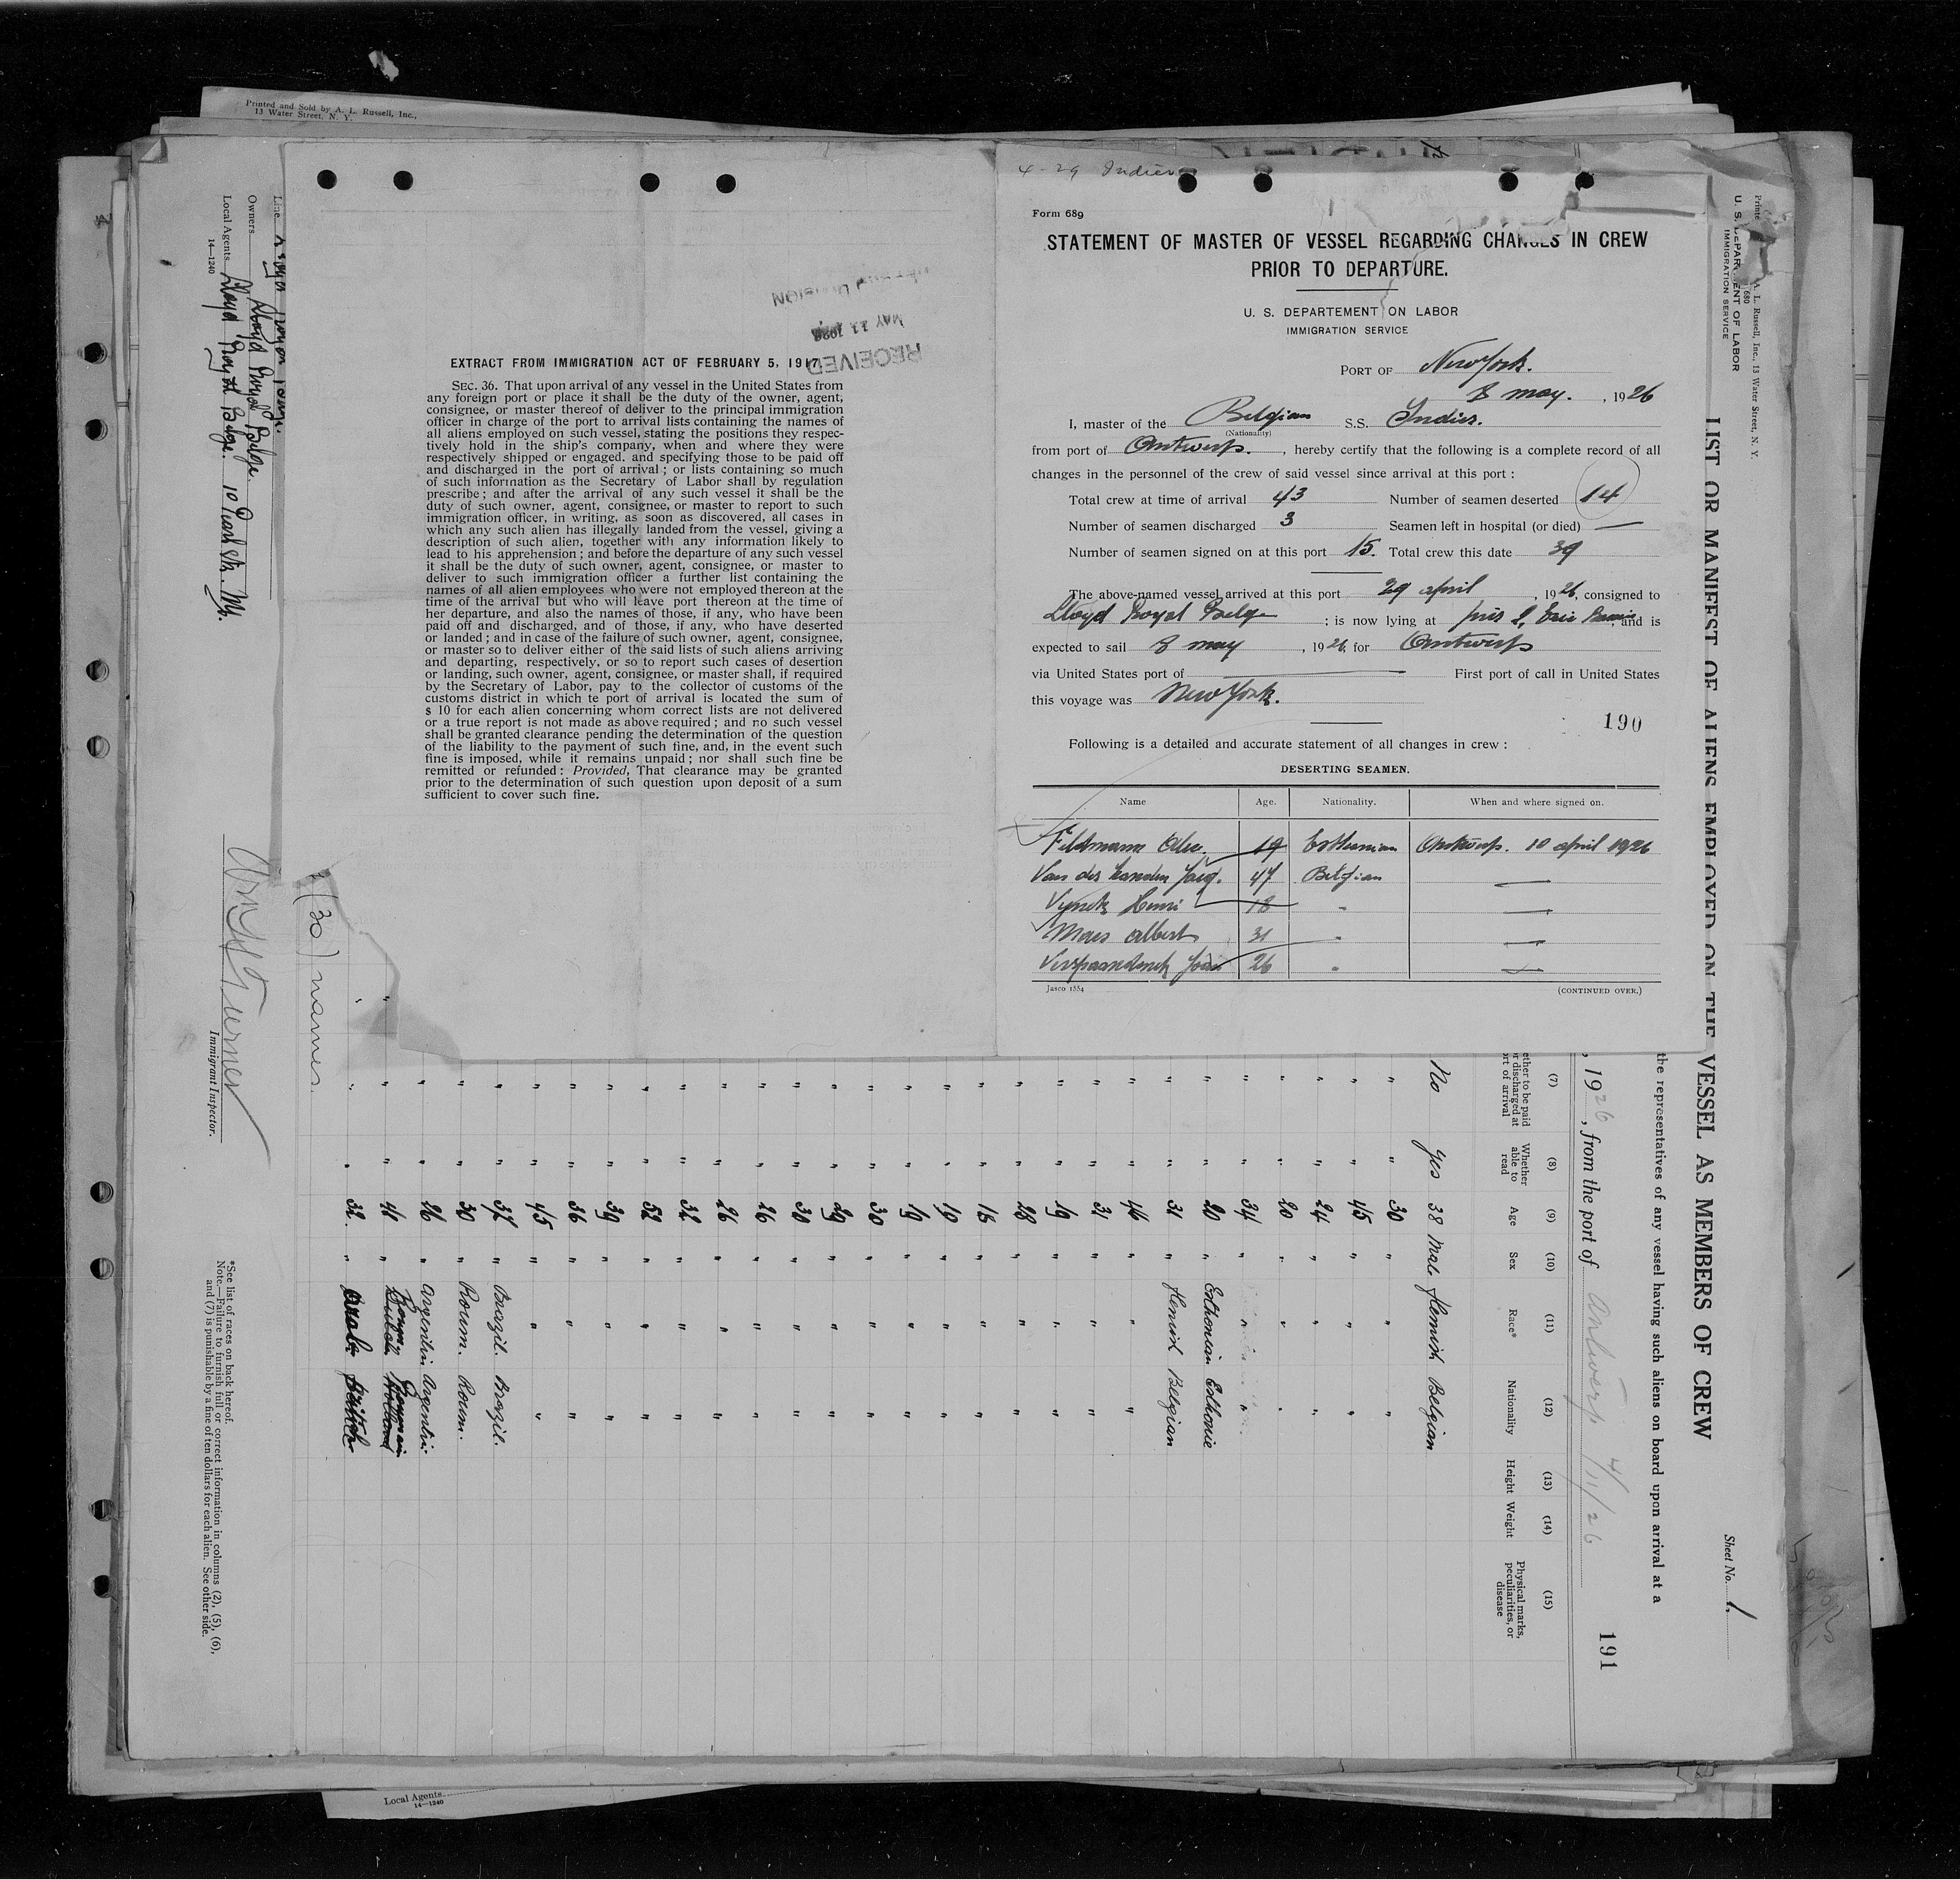 Printed and Sold by A. L. Russell, Inc.,
13 Water Street, N. Y.
4-29 Indier
Form 689
STATEMENT OF MASTER OF VESSEL REGARDING CHANGES IN CREW
PRIOR TO DEPARTURE.
U. S. DEPARTEMENT ON LABOR
IMMIGRATION SERVICE
PORT OF New York.
8 may. , 1926
I, master of the Belgian S.S. Indier.
(Nationality)
from port of Antwerp. , hereby certify that the following is a complete record of all
changes in the personnel of the crew of said vessel since arrival at this port :
Total crew at time of arrival 43 Number of seamen deserted 14
Number of seamen discharged 3 Seamen left in hospital (or died) —
Number of seamen signed on at this port 15. Total crew this date 39
The above-named vessel arrived at this port 29 april , 1926, consigned to
Lloyd Royal Belge ; is now lying at , and is
expected to sail 8 may , 1926, for Antwerp
via United States port of — First port of call in United States
this voyage was New York.
190
Following is a detailed and accurate statement of all changes in crew :
DESERTING SEAMEN.
Name Age. Nationality. When and where signed on.
Feldmann Alex. 19 Esthonian Antwerp. 10 april 1926
Van der 47 Belgian —
Henri 18 " —
Maes Albert 31 " —
26 " —
Jasco 1554 (CONTINUED OVER.)
RECEIVED
MAY 11 1926
DIVISION
EXTRACT FROM IMMIGRATION ACT OF FEBRUARY 5, 1917
SEC. 36. That upon arrival of any vessel in the United States from
any foreign port or place it shall be the duty of the owner, agent,
consignee, or master thereof of deliver to the principal immigration
officer in charge of the port to arrival lists containing the names of
all aliens employed on such vessel, stating the positions they respec-
tively hold in the ship's company, when and where they were
respectively shipped or engaged, and specifying those to be paid off
and discharged in the port of arrival ; or lists containing so much
of such information as the Secretary of Labor shall by regulation
prescribe ; and after the arrival of any such vessel it shall be the
duty of such owner, agent, consignee, or master to report to such
immigration officer, in writing, as soon as discovered, all cases in
which any such alien has illegally landed from the vessel, giving a
description of such alien, together with any information likely to
lead to his apprehension ; and before the departure of any such vessel
it shall be the duty of such owner, agent, consignee, or master to
deliver to such immigration officer a further list containing the
names of all alien employees who were not employed thereon at the
time of the arrival but who will leave port thereon at the time of
her departure, and also the names of those, if any, who have been
paid off and discharged, and of those, if any, who have deserted
or landed ; and in case of the failure of such owner, agent, consignee,
or master so to deliver either of the said lists of such aliens arriving
and departing, respectively, or so to report such cases of desertion
or landing, such owner, agent, consignee, or master shall, if required
by the Secretary of Labor, pay to the collector of customs of the
customs district in which te port of arrival is located the sum of
$ 10 for each alien concerning whom correct lists are not delivered
or a true report is not made as above required ; and no such vessel
shall be granted clearance pending the determination of the question
of the liability to the payment of such fine, and, in the event such
fine is imposed, while it remains unpaid ; nor shall such fine be
remitted or refunded : Provided, That clearance may be granted
prior to the determination of such question upon deposit of a sum
sufficient to cover such fine.
A. L. Russell, Inc., 13 Water Street, N. Y.
680
U. S. DEPARTMENT OF LABOR
IMMIGRATION SERVICE
Sheet No. 1.
LIST OR MANIFEST OF ALIENS EMPLOYED ON THE VESSEL AS MEMBERS OF CREW
the representatives of any vessel having such aliens on board upon arrival at a
, 1926, from the port of Antwerp 4/11/26
191
(7) (8) (9) (10) (11) (12) (13) (14) (15)
Whether able to read Age Sex Race* Nationality Height Weight Physical marks, peculiarities, or disease
No Yes 38 Male flemish Belgian
" " 30 " " "
" " 45 " " "
" " 24 " " "
" " 20 " " "
" " 34 " " "
" " 20 " Esthonian Esthonie
" " 31 " flemish Belgian
" " 46 " " "
" " 31 " " "
" " 19 " " "
" " 28 " " "
" " 18 " " "
" " 19 " " "
" " 19 " " "
" " 30 " " "
" " 29 " " "
" " 30 " " "
" " 26 " " "
" " 26 " " "
" " 32 " " "
" " 52 " " "
" " 39 " " "
" " 36 " " "
" " 45 " " "
" " 37 " Brazil. Brazil.
" " 30 " Roum. Roum.
" " 26 " Argentin Argentin
" " 41 "
" " 32. " Arab British
(30) names.
Immigrant Inspector.
Line
Owners Lloyd Royal Belge.
Local Agents Lloyd Royal Belge. 10 Pearl Str. Ny.
14—1240
*See list of races on back hereof.
Note.—Failure to furnish full or correct information in columns (2), (5), (6),
and (7) is punishable by a fine of ten dollars for each alien. See other side.
Local Agents
14—1240